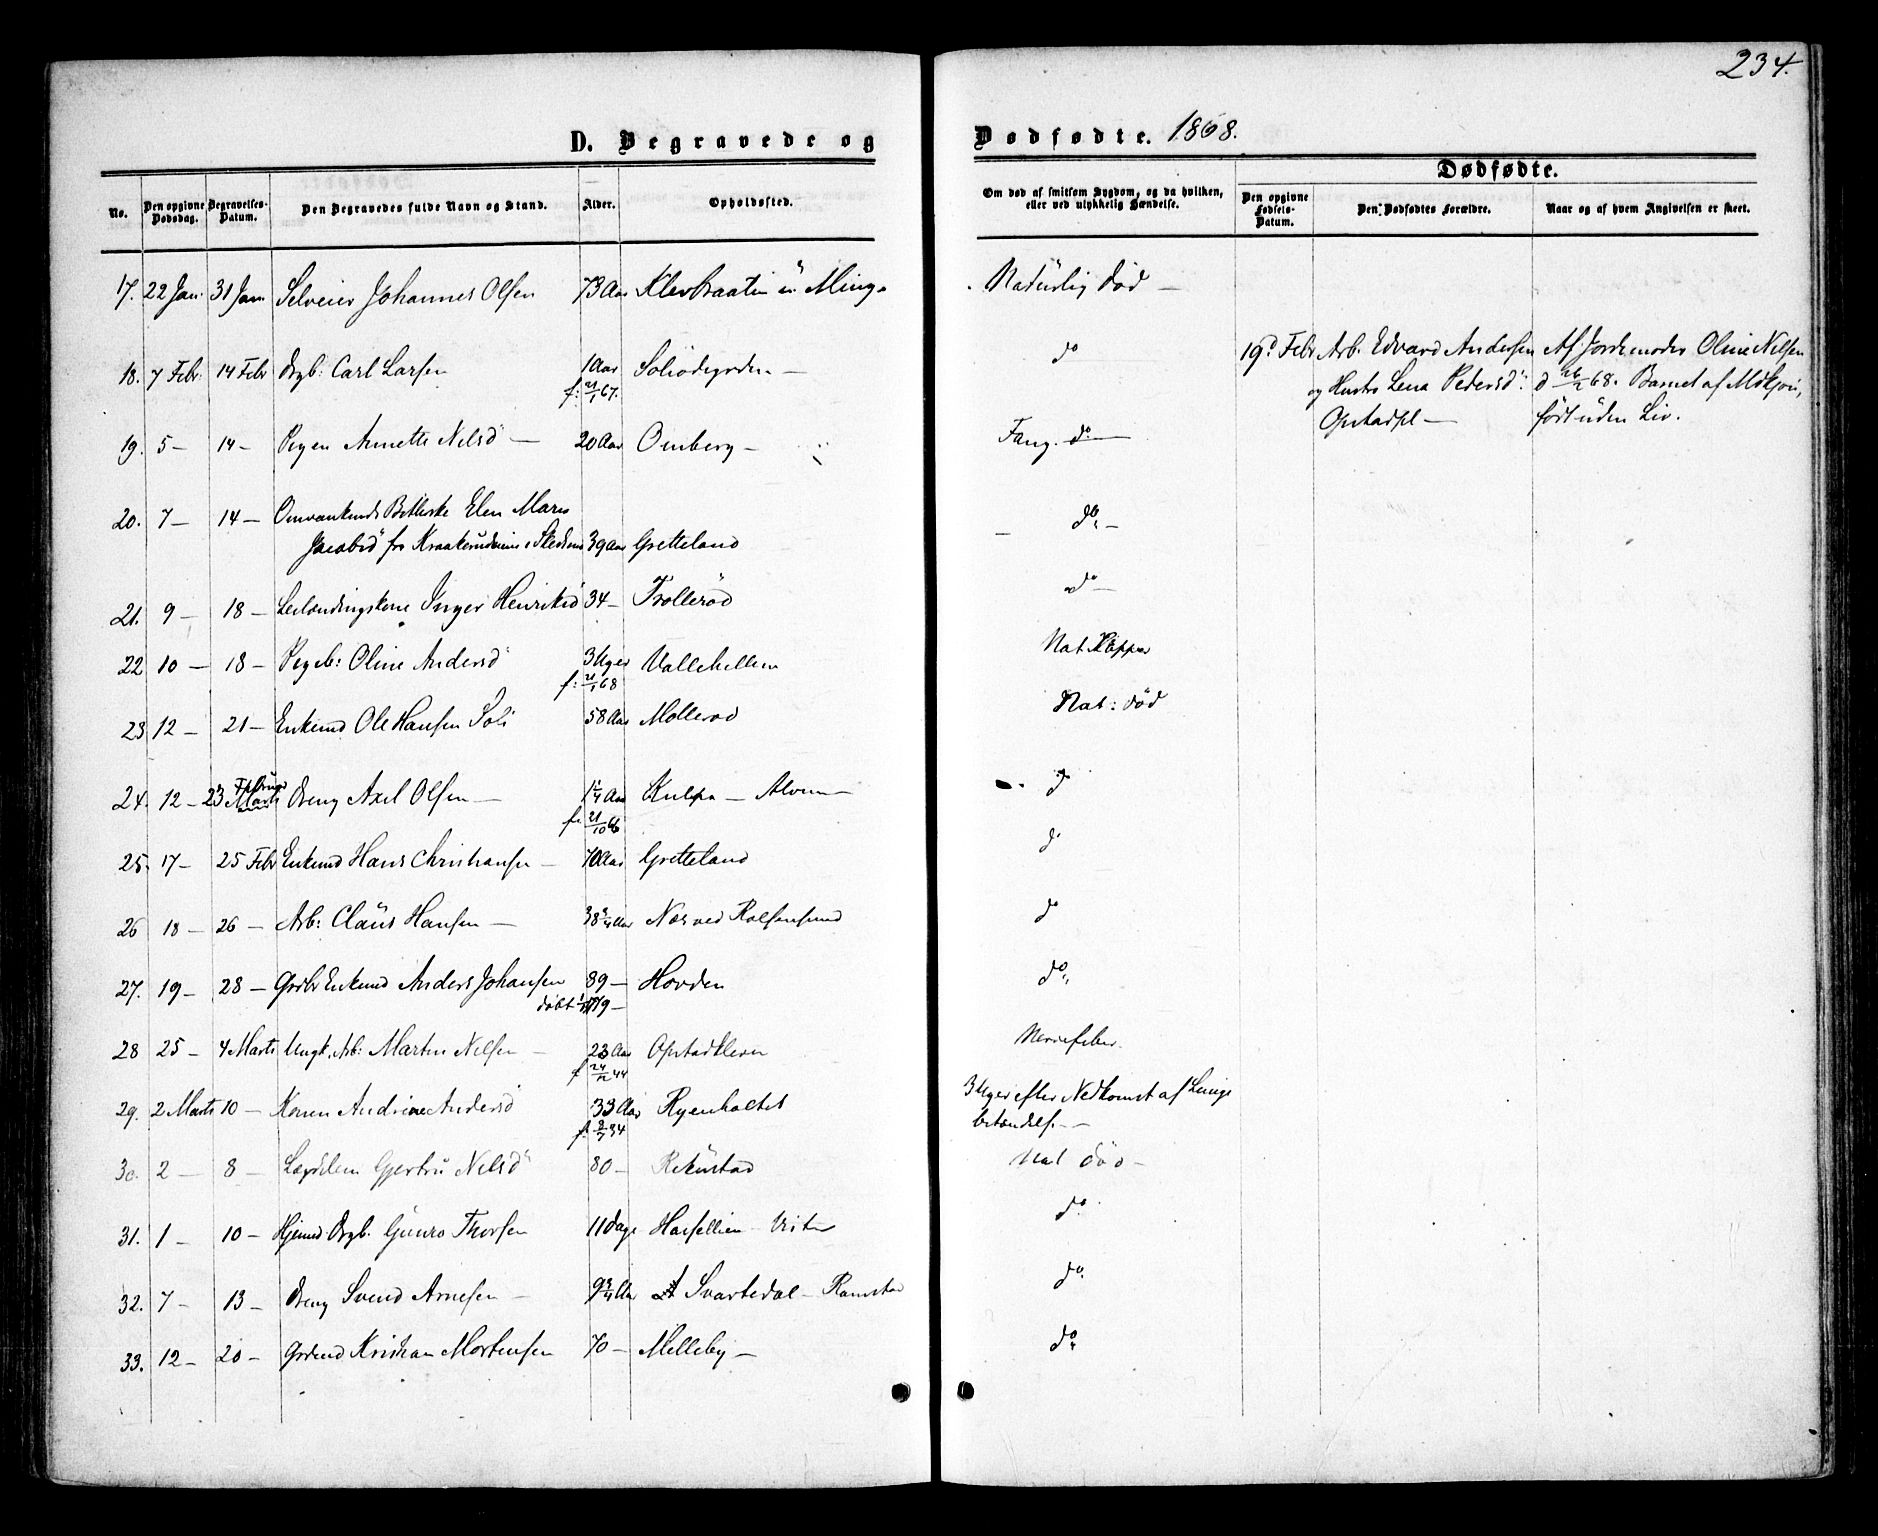 234.
D. Begravede og Dødfødte. 1868.
Dødfødte.
No. Den opgivne Dødsdag. Begravelses-Datum. Den Begravedes fulde Navn og Stand. Alder. Opholdssted. Om død af smitsom Sygdom, og da hvilken, eller ved ulykkelig Hændelse. Den opgivne Fødsels-Datum. Den Dødfødtes Forældre. Naar og af hvem Angivelsen er skeet.
17. 22 Jan. 31 Jan Selveier Johannes Olsen 73 Aar Naturlig Død —
18. 7 Febr. 14 Febr Drgb: Carl Larsen 1 Aar do
f: 21/1 67.
19. 5 — 14 — Pigen Annette Nelsd — 20 Aar Omberg — Fang. do —
20. 7 — 14 — Omvankende Betlerske Elen Marie do —
Jacobsd fra 39 Aar Gretteland
21. 9 — 18 — Leilændingskone Inger Henriksd 34 — Trollerød do —
22 10 — 18 — Pigeb: Oline Andersd 3 Uger Vallehellen Nat. Kopper
f: 21/1 68
23 12 — 21 — Enkemd Ole Hansen 58 Aar Mollerød Nat: død
24. 12 — 23 Februar Marts Dreng Axel Olsen — 1 1/4 Aar Kulpa — Alvim — do
f. 21/10 66
25. 17 — 25 Febr Enkemd Hans Christiansen — 70 Aar Gretteland do
26 18 — 26 — Arb: Claus Hansen — 38 3/4 Aar Næs ved Rolfsøsund do
27. 19 — 28 — Grdbr Enkemd Anders Johansen 89 — Hovden do
døbt 1779 —
28 25 — 4 Marts Ungk. Arb: Martin Nelsen — 23 Aar Opstadkleven Nervefeber.
f 24/12 44
29. 2 Marts 10 — Karen Andrine Andersd 33 Aar Ryenholtet 3 Uger efter Nedkomst af Lunge
f. 8/7 34 betændels. —
30. 2 — 8 — Lægdslem Gjertru Nelsd 80 — Rekustad Nat død —
31. 1 — 10 — Hjemd Drgb. Gunro Thorsen 11 Dage do
32. 7 — 13 — Dreng Svend Arnesen — 9 3/4 Aar Svartedal — Ramstad do
33. 12 — 20 — Grdmd Kristian Mortensen 70 — Melleby — do
19d Febr Arb. Edvard Andersen Af Jordemoder Oline Nelsen
og Hustr Lena Pedersd: d 26/2 68. Barnet af
Opstadpl — født uden Liv.